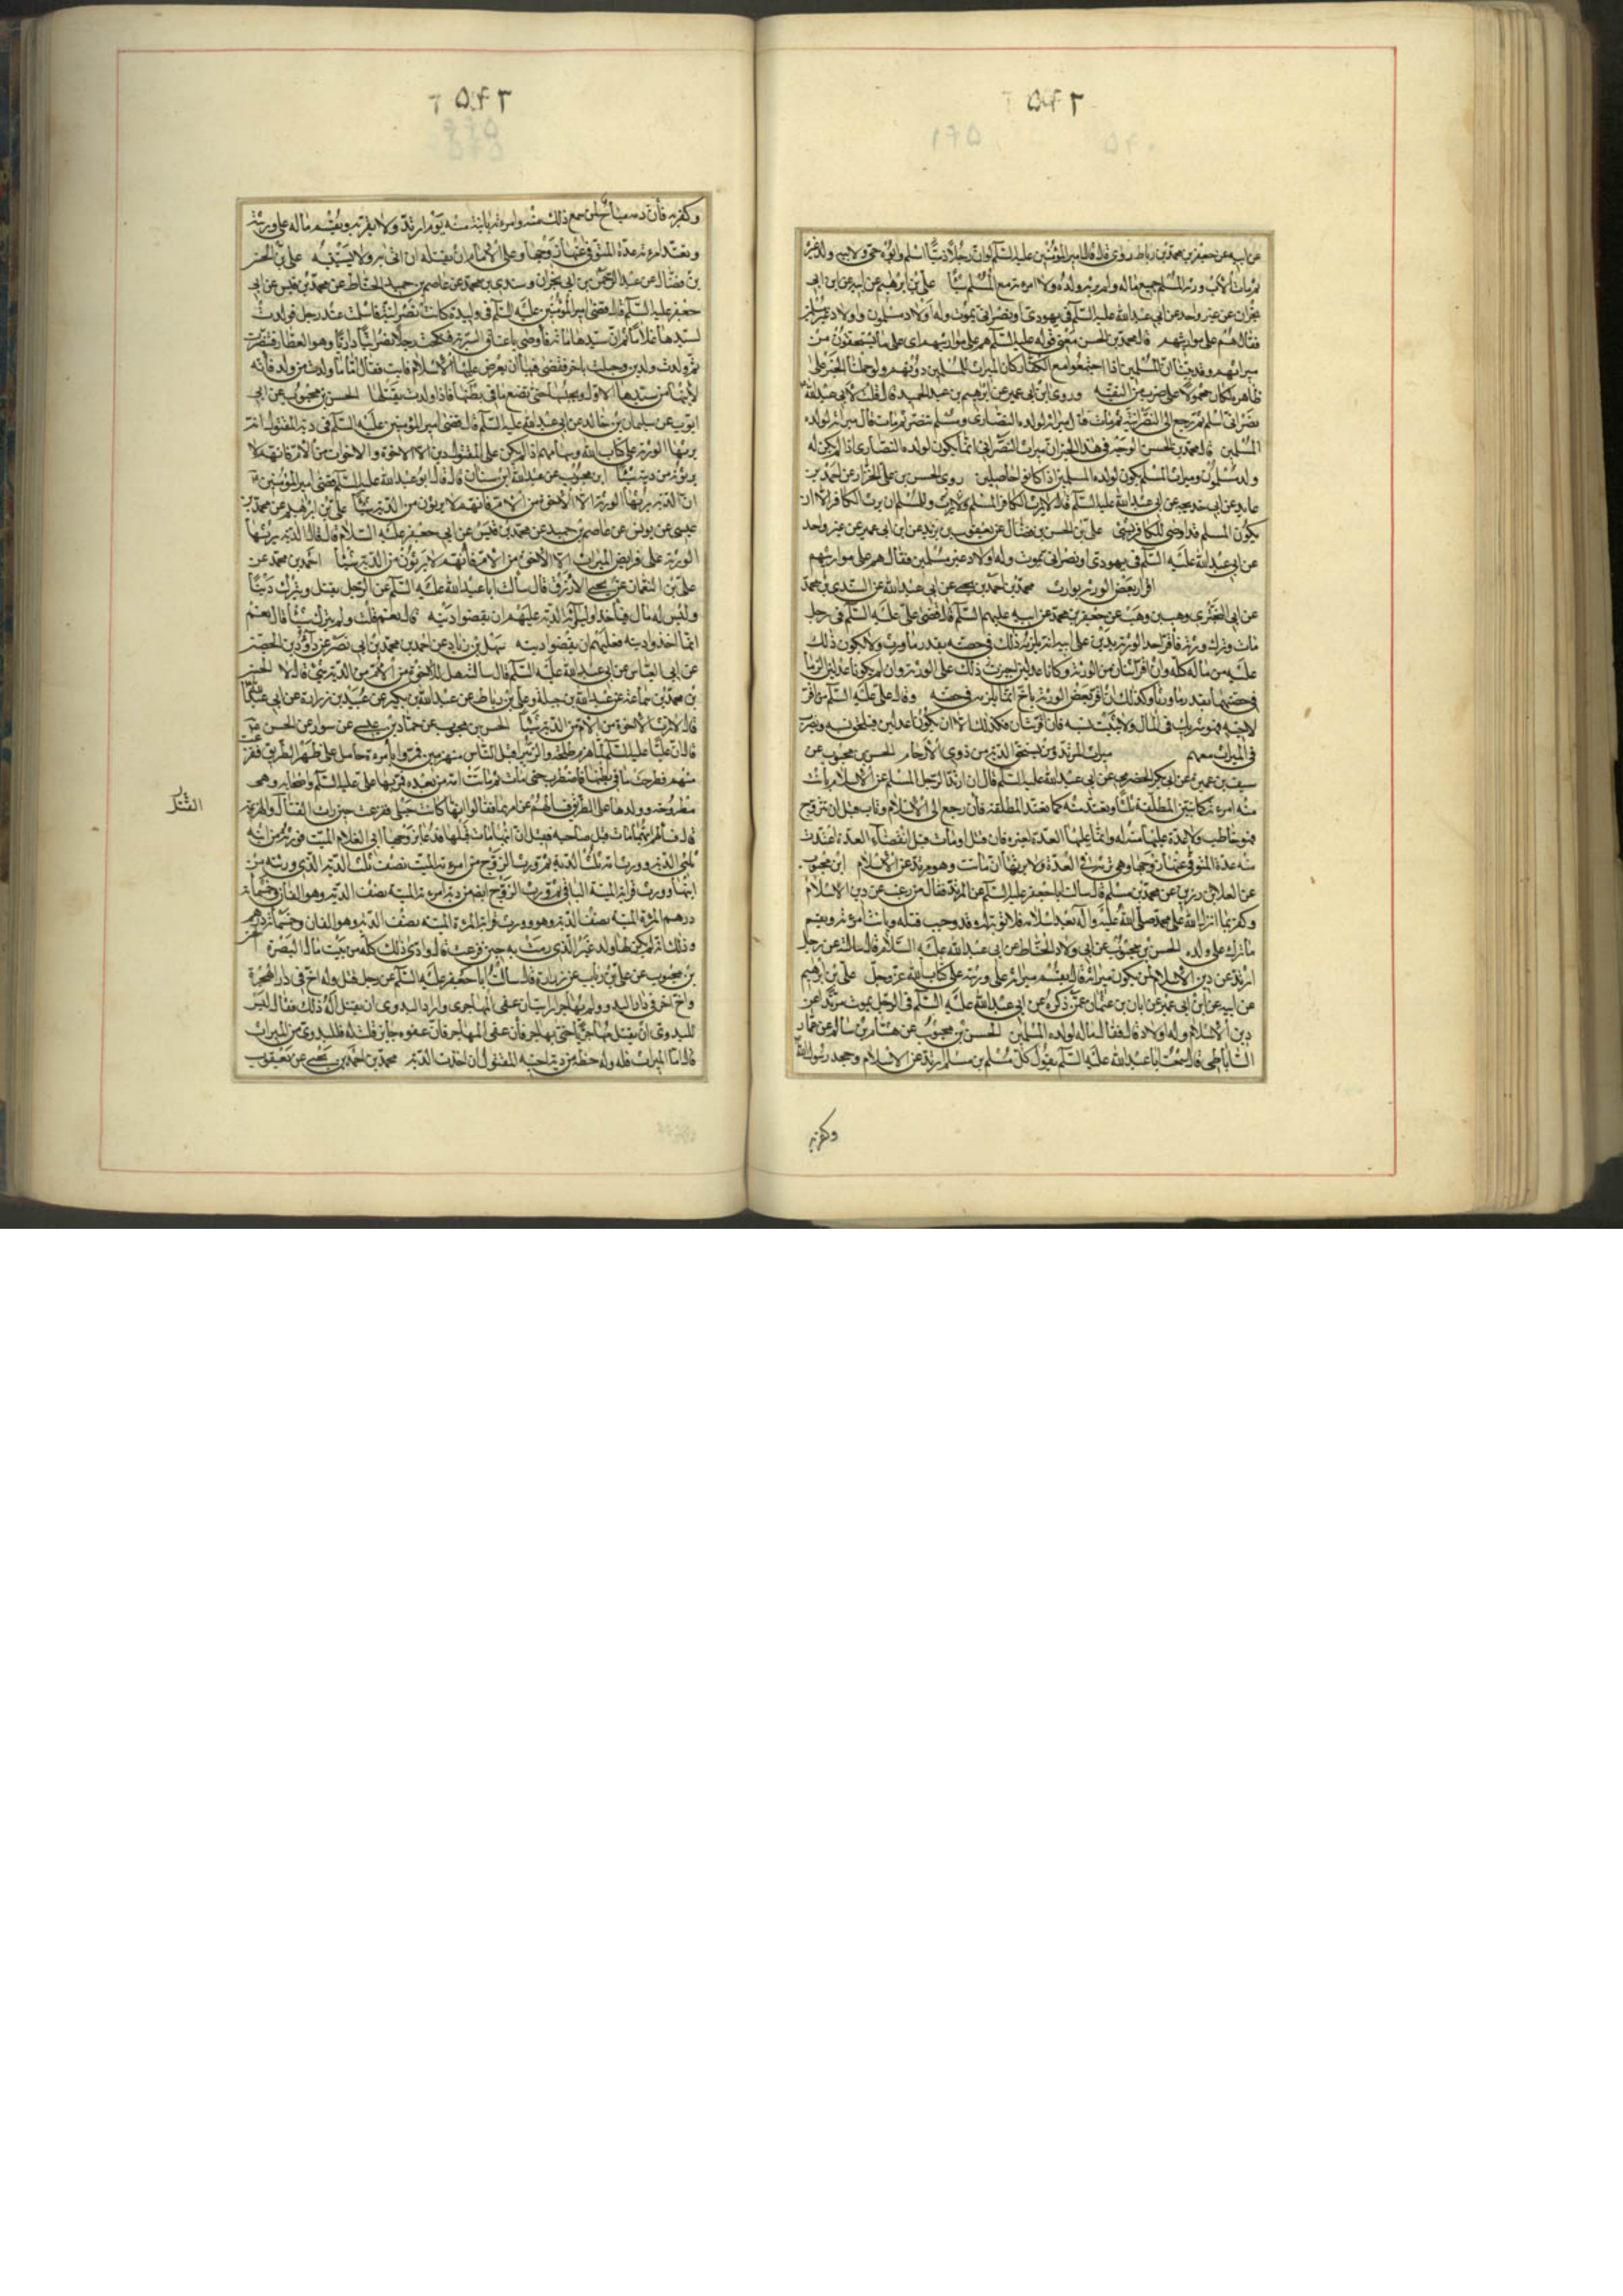 عن ابيه عن جعفر بن محمد بن رباط رفعه قال قال امير المؤمنين عليه السلم لو ان رجلا ذميا اسلم وابوه حي ولابيه ولد غيره
ثم مات الاب ورثه المسلم جميع ماله ولم يرثه ولده ولا امرءته مع المسلم شيئا علي بن ابرهيم عن ابيه عن ابن ابي
نجران عن غير واحد عن ابي عبد الله عليه السلم في يهودي او نصراني يموت وله اولاد مسلمون واولاد غير مسلمين
فقال هم على مواريثهم قال محمد بن الحسن معنى قوله عليه السلم هم على مواريثهم اي على ما يستحقون من
ميراثهم وقد بينا ان المسلمين اذا اجتمعوا مع الكفار كان الميراث للمسلمين دونهم ولو حملنا الخبر على
ظاهره لكان محمولا على ضرب من التقية وروى ابن ابي عمير عن ابرهيم بن عبد الحميد قال قلت لابي عبد الله
نصراني اسلم ثم رجع الى النصرانية ثم مات قال ميراثه لولده النصارى ومسلم تنصر ثم مات قال ميراثه لولده
المسلمين قال محمد بن الحسن الوجه في هذا الخبر ان ميراث النصراني انما يكون لولده النصارى اذا لم يكن له
ولد مسلمون وميراث المسلم يكون لولده المسلمين اذا كانوا حاصلين روى الحسن بن علي الخزاز عن احمد بن
عايذ عن ابي خديجه عن ابي عبد الله عليه السلم قال لا يرث الكافر المسلم وللمسلم ان يرث الكافر الا ان
يكون المسلم قد اوصى للكافر بشيء علي بن الحسن بن فضال عن يعقوب بن يزيد عن ابن ابي عمير عن غير واحد
عن ابي عبد الله عليه السلم في يهودي او نصراني يموت وله اولاد غير مسلمين فقال هم على مواريثهم
اقرار بعض الورثه بوارث محمد بن احمد بن يحيى عن ابي عبد الله عن السندي بن محمد
عن ابي البختري وهب بن وهب عن جعفر بن محمد عن ابيه عليهم السلم قال قضى علي عليه السلم في رجل
مات وترك ورثة فاقر احد الورثة بدين على ابيه انه يلزمه ذلك في حصته بقدر ما ورث ولا يكون ذلك
عليه من ماله كله وان اقر اثنان من الورثة وكانا عدلين اجيز ذلك على الورثه وان لم يكونا عدلين الزما
في حصتهما بقدر ما ورثا وكذلك ان اقر بعض الورثة باخ انما يلزمه في حصته وقال علي عليه السلم من اقر
لاخيه فهو شريك في المال ولا يثبت نسبه فان اقر اثنان فكذلك الا ان يكونا عدلين فيلحق نسبه ويضرب
في الميراث معهم ميراث المرتد ومن يستحق الدية من ذوي الارحام الحسن بن محبوب عن
سيف بن عميره عن ابي بكر الحضرمي عن ابي عبد الله عليه السلم قال ان ارتد الرجل المسلم عن الاسلام بانت
منه امرءته كما تبين المطلقة ثلثا وتعتد منه كما تعتد المطلقه فان رجع الى الاسلام وتاب قبل ان تتزوج
فهو خاطب ولا عدة عليها منه له وانما عليها العدة لغيره فان قتل او مات قبل انقضاء العدة اعتدت
منه عدة المتوفى عنها زوجها وهي ترثه في العدة ولا يرثها ان ماتت وهو مرتد عن الاسلام ابن محبوب
عن العلا بن رزين عن محمد بن مسلم قال سالت ابا جعفر عليه السلم عن المرتد فقال من رغب عن دين الاسلام
وكفر بما انزل الله على محمد صلى الله عليه واله بعد اسلامه فلا توبة له وقد وجب قتله وبانت امرءته ويقسم
ما ترك على ولده الحسن بن محبوب عن ابي ولاد الحناط عن ابي عبد الله عليه السلام قال سالته عن رجل
ارتد عن دين الاسلام لمن يكون ميراثه قال يقسم ميراثه على ورثته على كتاب الله عز وجل علي بن ابرهيم
عن ابيه عن ابن ابي عمير عن ابان بن عثمان عمن ذكره عن ابي عبد الله عليه السلم في الرجل يموت مرتدا عن
دين الاسلام وله اولاد قال فقال ماله لولده المسلمين الحسن بن محبوب عن هشام بن سالم عن عمار
الساباطي قال سمعت ابا عبد الله عليه السلم يقول كل مسلم بن مسلم ارتد عن الاسلام وجحد رسول الله
وكفر به
وكفر به فان دمه مباح لمن سمع ذلك منه وامرءته باينة منه يوم ارتد ولا يقربه ويقسم ماله على ورثته
وتعتد امرءته عدة المتوفى عنها زوجها وعلى الامام ان يقتله ان اتي به ولا يستتيبه علي بن الحسن
بن فضال عن عبد الرحمن بن ابي نجران وسندي بن محمد عن عاصم بن حميد الحناط عن محمد بن قيس عن ابي
جعفر عليه السلم قال قضى امير المؤمنين عليه السلم في وليدة كانت نصرانية فاسلمت عند رجل فولدت
لسيدها غلاما ثم ان سيدها مات فاوصى باعتاق السرية فنكحت رجلا نصرانيا داريا وهو العطار فتنصرت
ثم ولدت ولدين وحبلت باخر فقضى فيها ان يعرض عليها الاسلام فابت فقال اما ما ولدت من ولد فانه
لابنها من سيدها الاول ويحبسها حتى تضع ما في بطنها فاذا ولدت يقتلها الحسن بن محبوب عن ابي
ايوب عن سليمان بن خالد عن ابي عبد الله عليه السلم قال قضى امير المؤمنين عليه السلم في دية المقتول انه
يرثها الورثة على كتاب الله وسهامهم اذا لم يكن على المقتول دين الا الاخوة والاخوات من الام فانهم لا
يرثون من ديته شيئا ابن محبوب عن عبد الله بن سنان قال قال ابو عبد الله عليه السلم قضى امير المؤمنين
ان الدية يرثها الورثة الا الاخوة من الام فانهم لا يرثون من الدية شيئا علي بن ابرهيم عن محمد بن
عيسى عن يونس عن عاصم بن حميد عن محمد بن قيس عن ابي جعفر عليه السلام قال قال الدية يرثها
الورثة على فرايض الميراث الا الاخوة من الام فانهم لا يرثون من الدية شيئا احمد بن محمد عن
علي بن النعمان عن يحيى الازرق قال سالت ابا عبد الله عليه السلم عن الرجل يقتل ويترك دينا
وليس له مال فياخذ اولياؤه الدية عليهم ان يقضوا دينه قال نعم قلت ولم يترك شيئا قال نعم
انما اخذوا ديته فعليهم ان يقضوا دينه سهل بن زياد عن احمد بن محمد بن ابي نصر عن داود بن الحصين
عن ابي العباس عن ابي عبد الله عليه السلم قال سالته هل للاخوة من الام من الدية شيء قال لا الحسن
بن محمد بن سماعة عن عبد الله بن جبلة وعلي بن رباط عن عبد الله بن بكير عن عبيد بن زرارة عن ابي عبد الله
قال لا يرث الاخوة من الام من الدية شيئا الحسن بن محبوب عن حماد بن عيسى عن سوار عن الحسن
قال ان عليا عليه السلم لما هزم طلحة والزبير اقبل الناس منهزمين فمروا بامرءة حامل على ظهر الطريق ففزعت
منهم فطرحت ما في بطنها فاضطرب حتى مات ثم ماتت امه من بعده فمر بها علي عليه السلم واصحابه وهي
مطروحه وولدها على الطريق فسالهم عن امرها فقالوا انها كانت حبلى ففزعت حين رات القتال والهزيمة
القتال
قال فسالهم ايهما مات قبل صاحبه فقيل ان ابنها مات قبلها فدعا بزوجها ابي الغلام الميت فورثه من ابنه
ثلثي الدية وورث امه ثلث الدية ثم ورث الزوج من امرءته الميتة نصف ثلث الدية الذي ورثته من
ابنها وورث قرابة الميتة الباقي ثم ورث الزوج ايضا من دية امرءته الميتة نصف الدية وهو الفان وخمسمائة
درهم وورث قرابة المرءة الميتة نصف الدية وهو الفان وخمسمائة درهم
وذلك انه لم يكن لها ولد غير الذي رمت به حين فزعت قال وادى ذلك كله من بيت مال البصرة الحسن
بن محبوب عن علي بن رباب عن زرارة قال سالت ابا جعفر عليه السلم عن رجل قتل وله اخ في دار الهجرة
واخ اخر في دار البدو ولم يهاجر ارايت ان عفى المهاجري واراد البدوي ان يقتل اله ذلك فقال ليس
للبدوي ان يقتل مهاجريا حتى يهاجر فان عفى المهاجر فان عفوه جايز قلت له فللبدوي من الميراث
قال اما الميراث فله وله حظه من دية اخيه المقتول ان اخذت الدية محمد بن احمد بن يحيى عن يعقوب